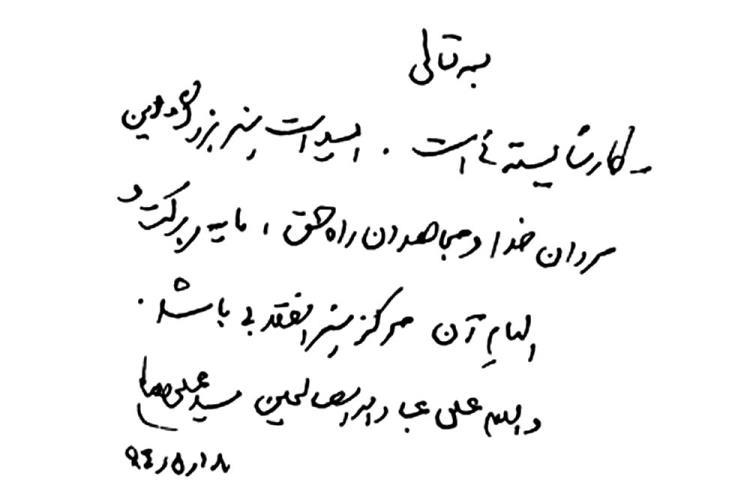 بسمه تعالی
ـ کار شایسته‌ئی است . امید است هنر بزرگ و دین
مردان خدا و مجاهدان راه حق ، مایه برکت و
الهامِ آن مرکز هنر انقلابی باشد .
والسلام علی عباد الله الصالحین سید علی خامنه‌ای
۹۴/۵/۱۸